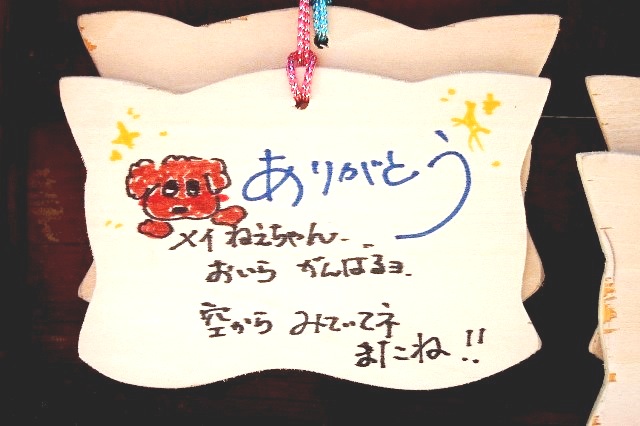 ありがとう
メイねえちゃん..
おいら がんばるヨ.
空から みててネ
またね!!